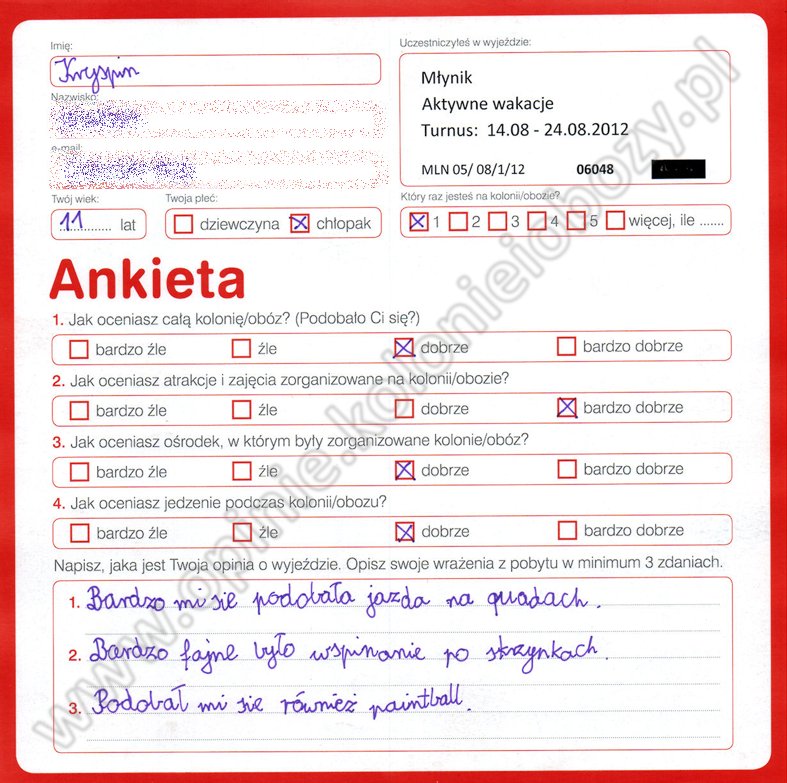 Imię:
Kryspin
Nazwisko:
e-mail:
Twój wiek:
11 lat
Twoja płeć:
dziewczyna chłopak
Uczestniczyłeś w wyjeździe:
Młynik
Aktywne wakacje
Turnus: 14.08 - 24.08.2012
MLN 05/ 08/1/12 06048
Który raz jesteś na kolonii/obozie?
1 2 3 4 5 więcej, ile .......
Ankieta
1. Jak oceniasz całą kolonię/obóz? (Podobało Ci się?)
bardzo źle źle dobrze bardzo dobrze
2. Jak oceniasz atrakcje i zajęcia zorganizowane na kolonii/obozie?
bardzo źle źle dobrze bardzo dobrze
3. Jak oceniasz ośrodek, w którym były zorganizowane kolonie/obóz?
bardzo źle źle dobrze bardzo dobrze
4. Jak oceniasz jedzenie podczas kolonii/obozu?
bardzo źle źle dobrze bardzo dobrze
Napisz, jaka jest Twoja opinia o wyjeździe. Opisz swoje wrażenia z pobytu w minimum 3 zdaniach.
1. Bardzo mi sie podobała jazda na quadach.
2. Bardzo fajne było wspinanie po skrzynkach.
3. Podobał mi się również paintball.
www.opinie.kolonieiobozy.pl